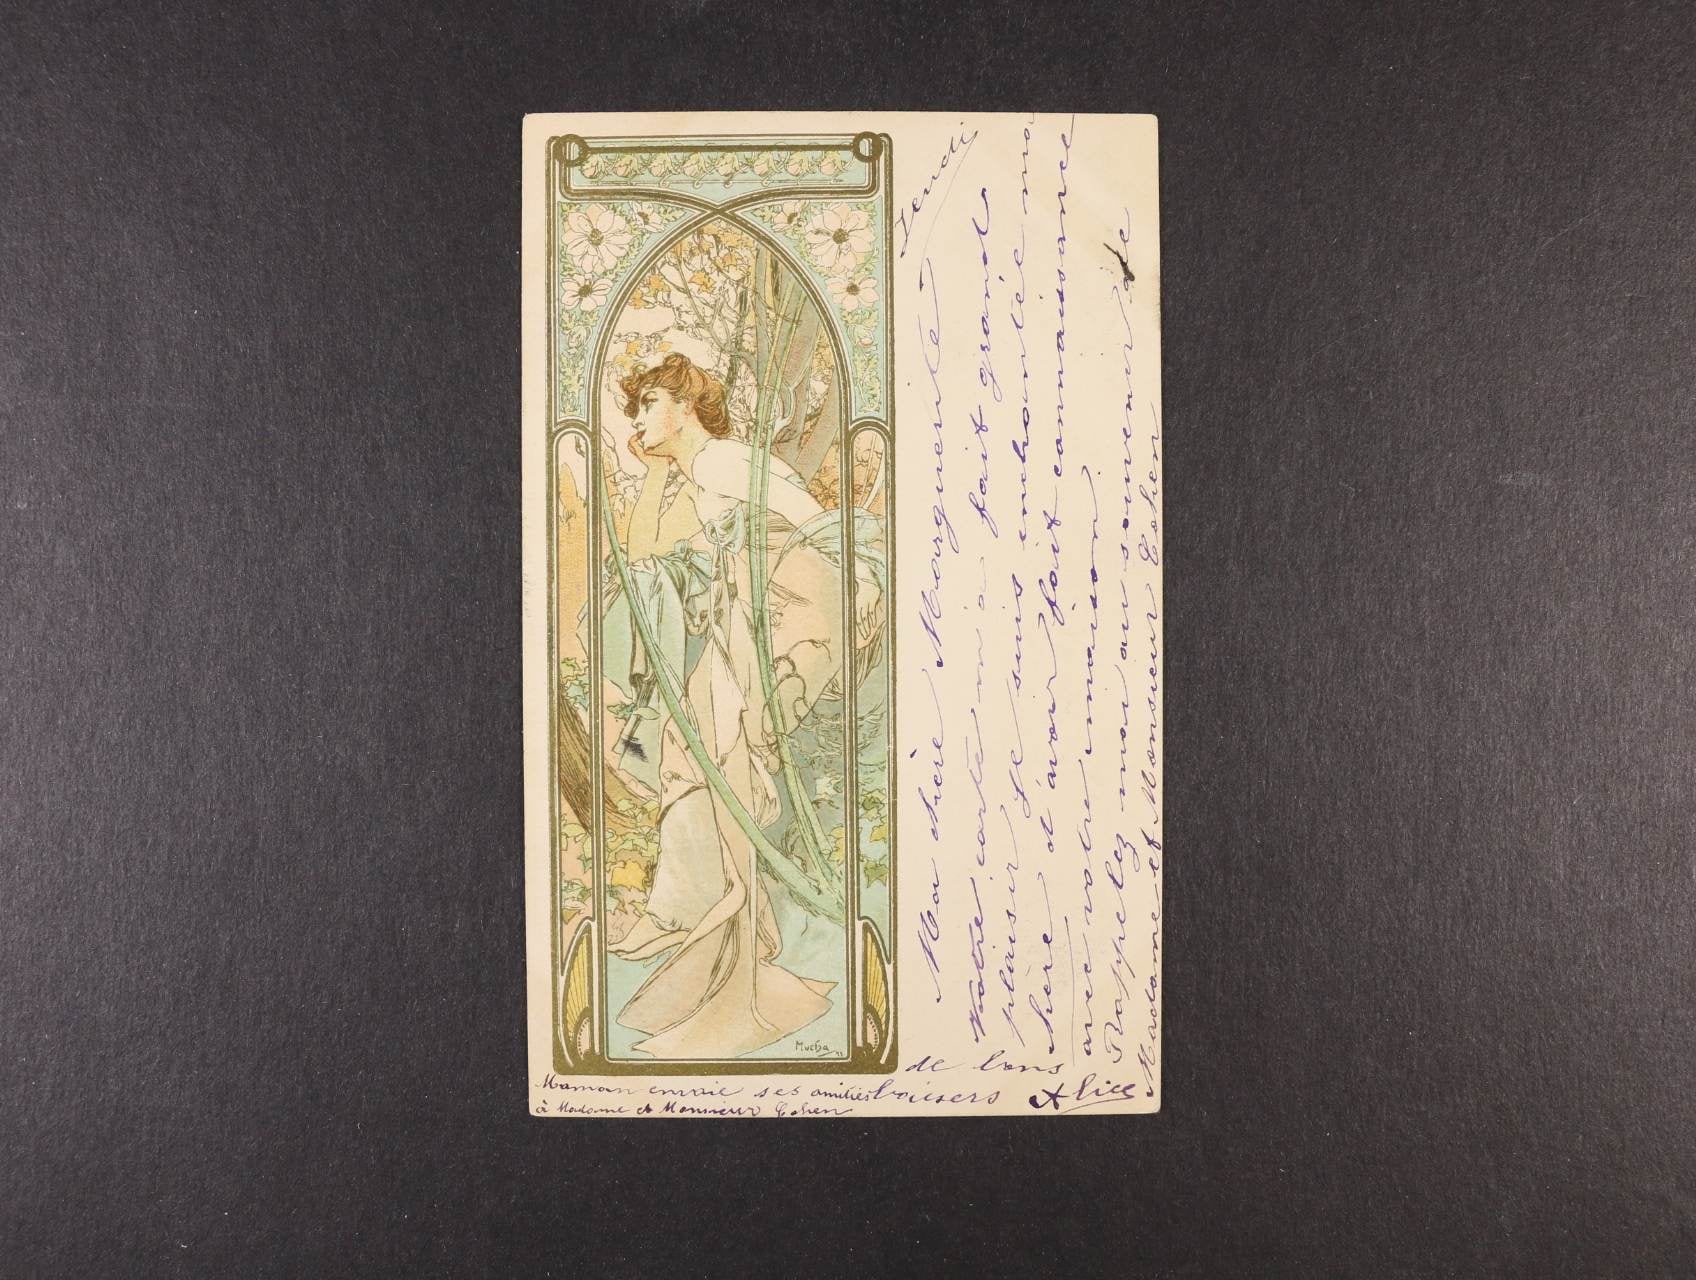 Jeudi
Ma chère Marguerite
Votre carte m'a fait grand
plaisir Je suis enchantée ma
chère d'avoir fait connaissance
avec votre maison
Rappelez moi au souvenir de
Madame et Monsieur Cohen
de bons
baisers Alice
Maman envoie ses amitiés
à Madame et Monsieur Cohen
Mucha